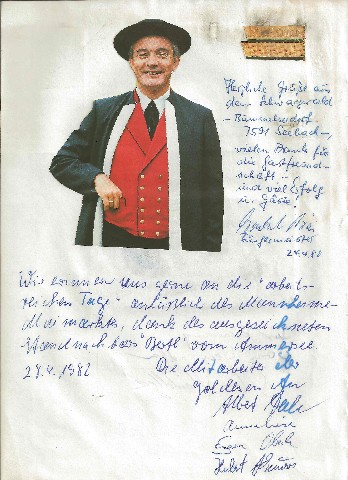 Herzliche Grüße aus
dem Schwarzwald
- Baumeisterdorf
7591 Seebach -,
vielen Dank für
die Gastfreund-
schaft -
und viel Erfolg
in Güte!
Bürgermeister
29.4.82
Wir erinnern uns gerne an die "arbeits-
reichen Tage" anläßlich des Mannheimer
Maimarktes, dank des ausgezeichneten
"Bertl" vom Ammersee.
29.4.1982 Die Mitarbeiter der
goldenen
Albert
Eugen
Hubert